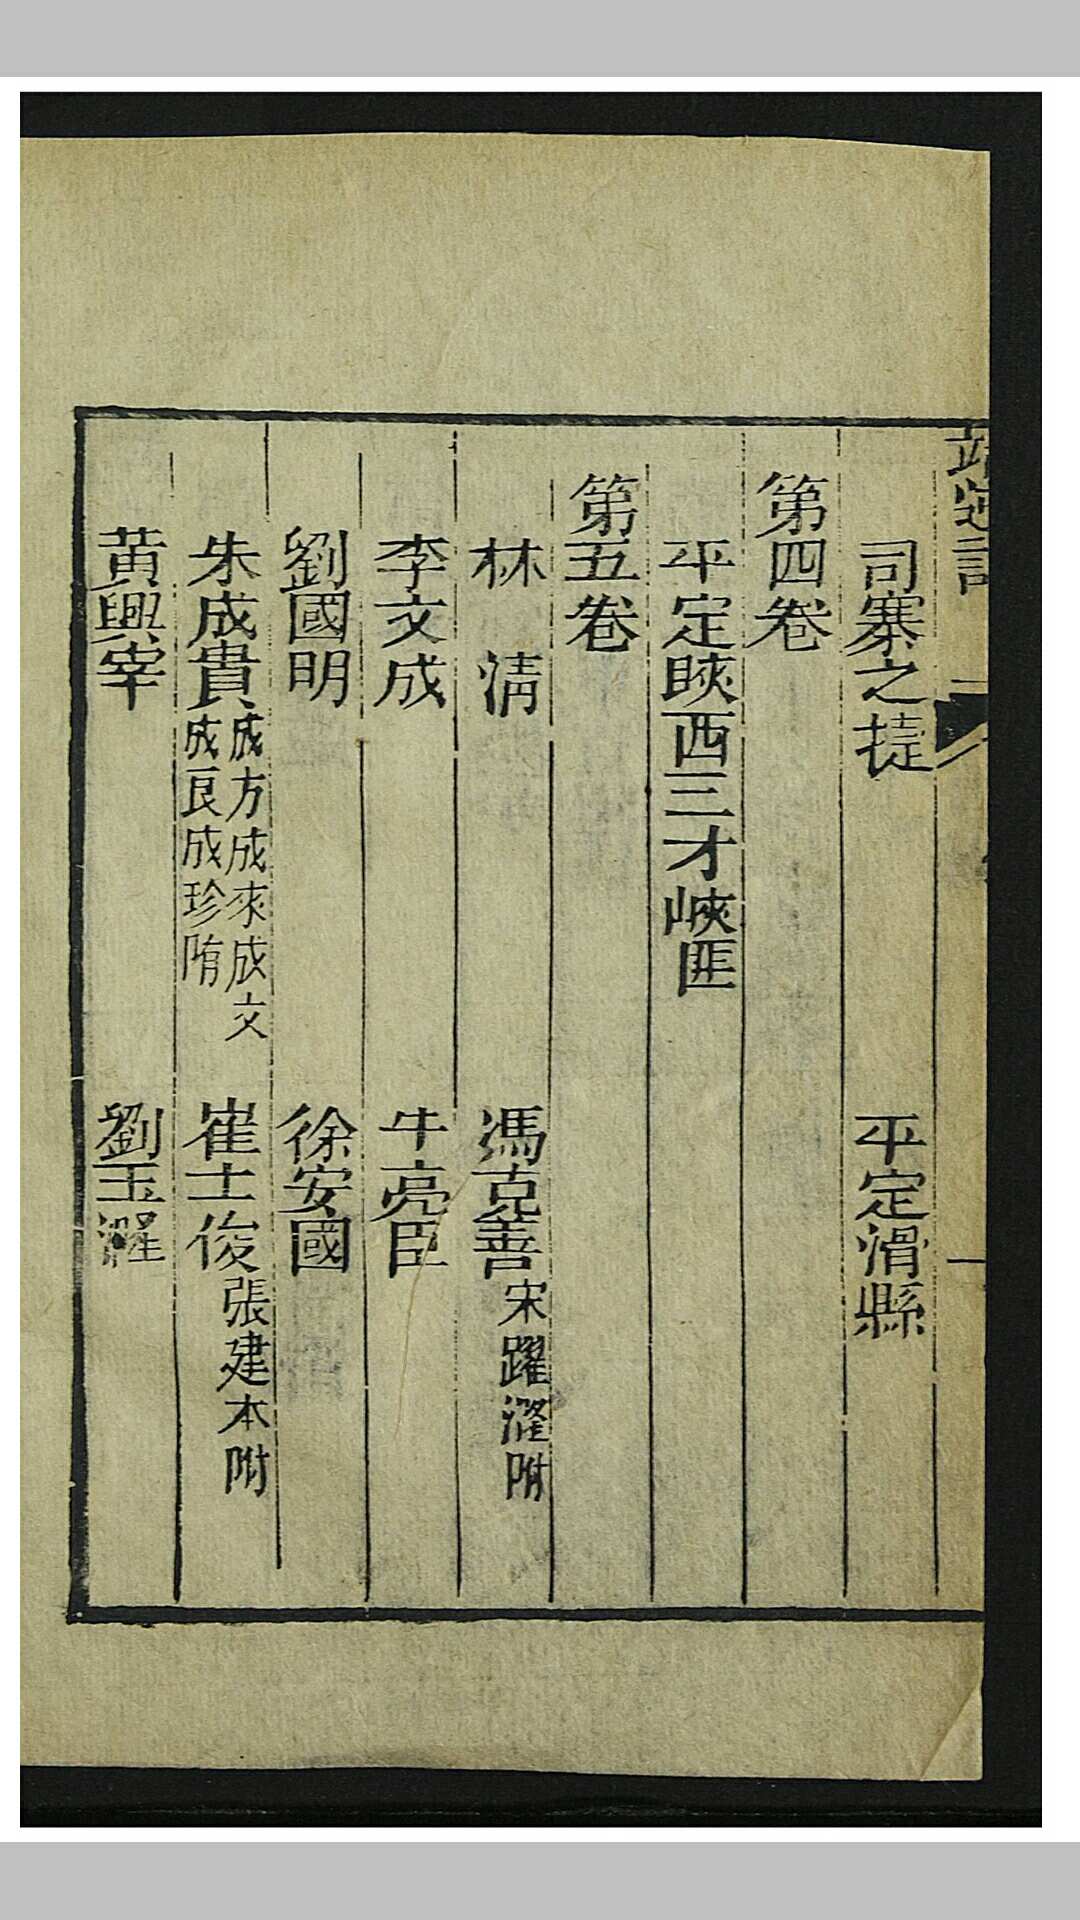 靖逆記
一
司寨之捷　平定滑縣
第四卷
平定陝西三才峽匪
第五卷
林　清　馮克善宋躍漋附
李文成　牛亮臣
劉國明　徐安國
朱成貴成方成來成文成良成珍附　崔士俊張建本附
黃興宰　劉玉漋